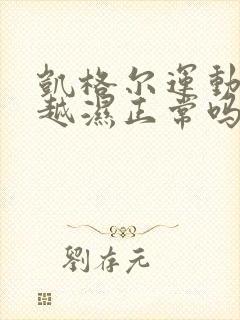 凱格尔運動
越濕正常吗
劉存元